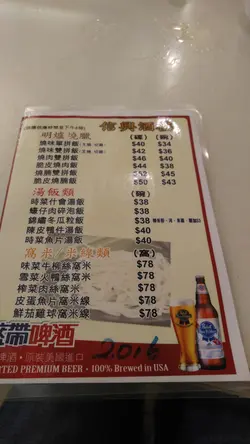 信興酒
明爐燒臘 (碟) (飯)
燒味單拼飯 $40 $34
燒味雙拼飯 $42 $36
燒肉雙拼飯 $46 $40
脆皮燒肉飯 $44 $38
燒腩雙拼飯 $45
脆皮燒腩飯 $50 $43
湯飯類
時菜什會湯飯 $38
蠔仔肉碎泡飯 $38
錦繡冬瓜粒飯 $38
陳皮鴨件湯飯 $38
時菜魚片湯飯 $38
窩米/米線類 (窩)
味菜牛柳絲窩米 $78
雪菜火鴨絲窩米 $78
榨菜肉絲窩米 $78
皮蛋魚片窩米線 $78
鮮茄雞球窩米線 $78
帶啤酒
啤酒・原裝美國進口
2016
TED PREMIUM BEER・100% Brewed in USA